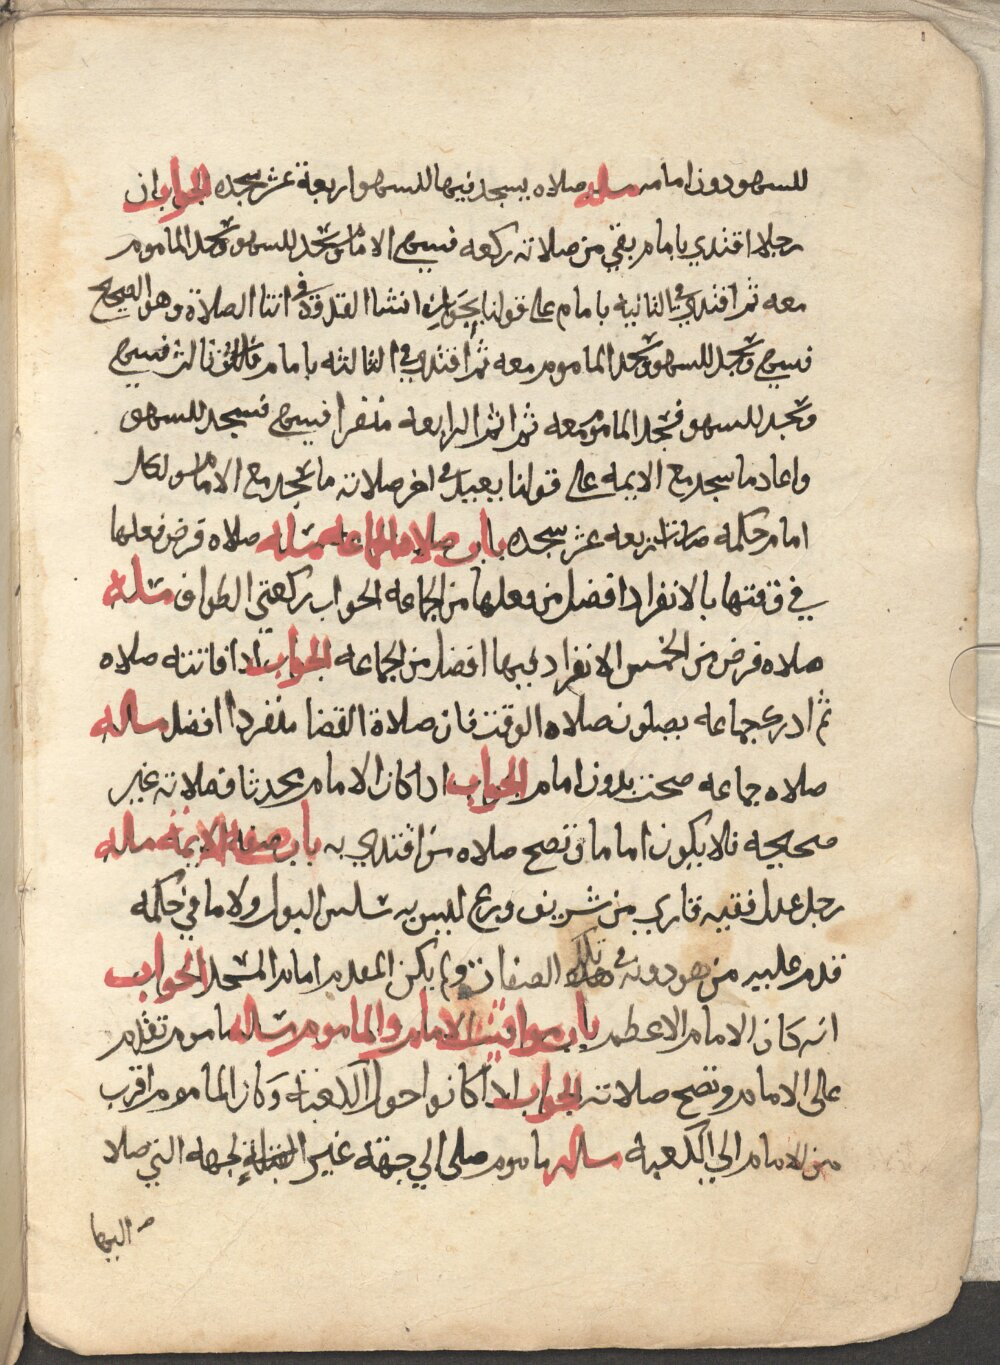 للسهو دون امامه مسله صلاه يسجد فيها للسهو اربعة عشر سجده الجواب ان
رجلا اقتدي بامام بقي من صلاته ركعه فسهى الامام وسجد للسهو وسجد الماموم
معه ثم اقتدي في الثانيه بامام على قولنا بجواز انشا القدوة في اثنا الصلاة وهو الصحيح
فسهى وسجد للسهو وسجد الماموم معه ثم اقتدي في الثالثه بامام ثالث فسهى
وسجد للسهو فسجد الماموم معه ثم اتم الرابعه منفردا فسهى فسجد للسهو
واعاد ما سجد مع الايمه على قولنا يعيد في اخر صلاته ما سجد مع الامام ولكل
امام حكمه صارت اربعه عشر سجده باب صلاه الجماعه مسله صلاه فرض فعلها
في وقتها بالانفراد افضل من فعلها من الجماعه الجواب ركعتى الطواف مسله
صلاه فرض من الخمس الانفراد فيها افضل من الجماعه الجواب اذا فاتته صلاه
ثم ادرك جماعه يصلون صلاه الوقت فان صلاة القضا منفردا افضل مساله
صلاه جماعه صحت بدون امام الجواب اذا كان الامام محدثا فصلاته غير
صحيحه فلا يكون اماما وتصح صلاه من اقتدي به باب صفه الايمة مساله
رجل عدل فقيه قاري من شريف ورع ليس به سلس البول ولا ما في حكمه
قدم عليه من هو دونه في تلك الصفات ولم يكن المقدم امام المسجد الجواب
انه كان الامام الاعظم باب مواقيت الامام والماموم مساله ماموم تقدم
على الامام وتصح صلاته الجواب اذا كانوا حول الكعبة وكان الماموم اقرب
من الامام الي الكعبة مساله ماموم صلى الي جهة غير الجهة التي صلا
اليها